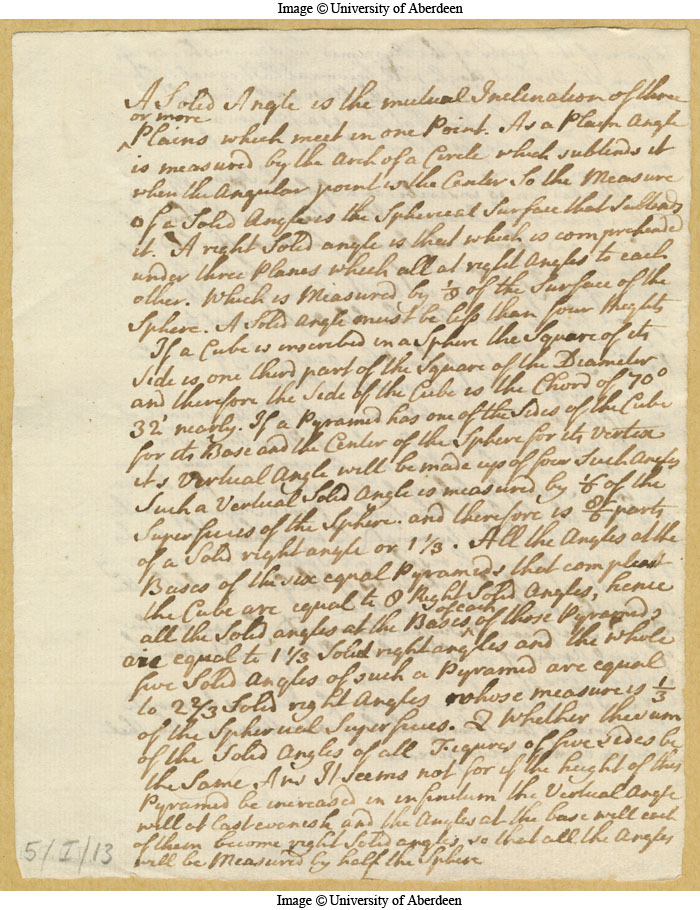 Image © University of Aberdeen
A Solid Angle is the mutual Inclination of three
or more
^ Plains which meet in one Point. As a Plain Angle
is measured by the Arch of a Circle which subtends it
when the Angular point is the Center So the Measure
of a Solid Angle is the Sphereical Surface that Subtends
it. A right Solid angle is that which is comprehended
under three Planes which all at right Angles to each
other. Which is Measured by 1/8 of the Surface of the
Sphere. A Solid Angle must be less than four Rights
If a Cube is inscribed in a Sphere the Square of its
Side is one third part of the Square of the Diameter
and therefore the Side of the Cube is the Chord of 70°
32' nearly. If a Pyramid has one of the Sides of the Cube
for its Base and the Center of the Sphere for its Vertex
its Vertical Angle will be made up of four Such Angles
Such a Vertical Solid Angle is measured by 1/6 of the
Superficies of the Sphere. and therefore is 8/6 parts
of a Solid right angle or 1 1/3. All the Angles at the
Bases of the six equal Pyramids that compleat
the Cube are equal to 8 Right Solid Angles, hence
all the Solid angles at the Bases ^ of those Pyramids
of each
are equal to 1 1/3 Solid right angles and the whole
five Solid Angles of such a Pyramid are equal
to 2 2/3 Solid right Angles whose measure is 1/3
of the Spherical Superficies. Q Whether the sum
of the Solid Angles of all Figures of five Sides be
the Same Ans It seems not for if the height of this
Pyramid be increased in infinitum the Vertical Angle
will at last evanish and the Angles at the base will each
of them become right Solid angles, so that all the Angles
will be Measured by half the Sphere
5/I/13
Image © University of Aberdeen